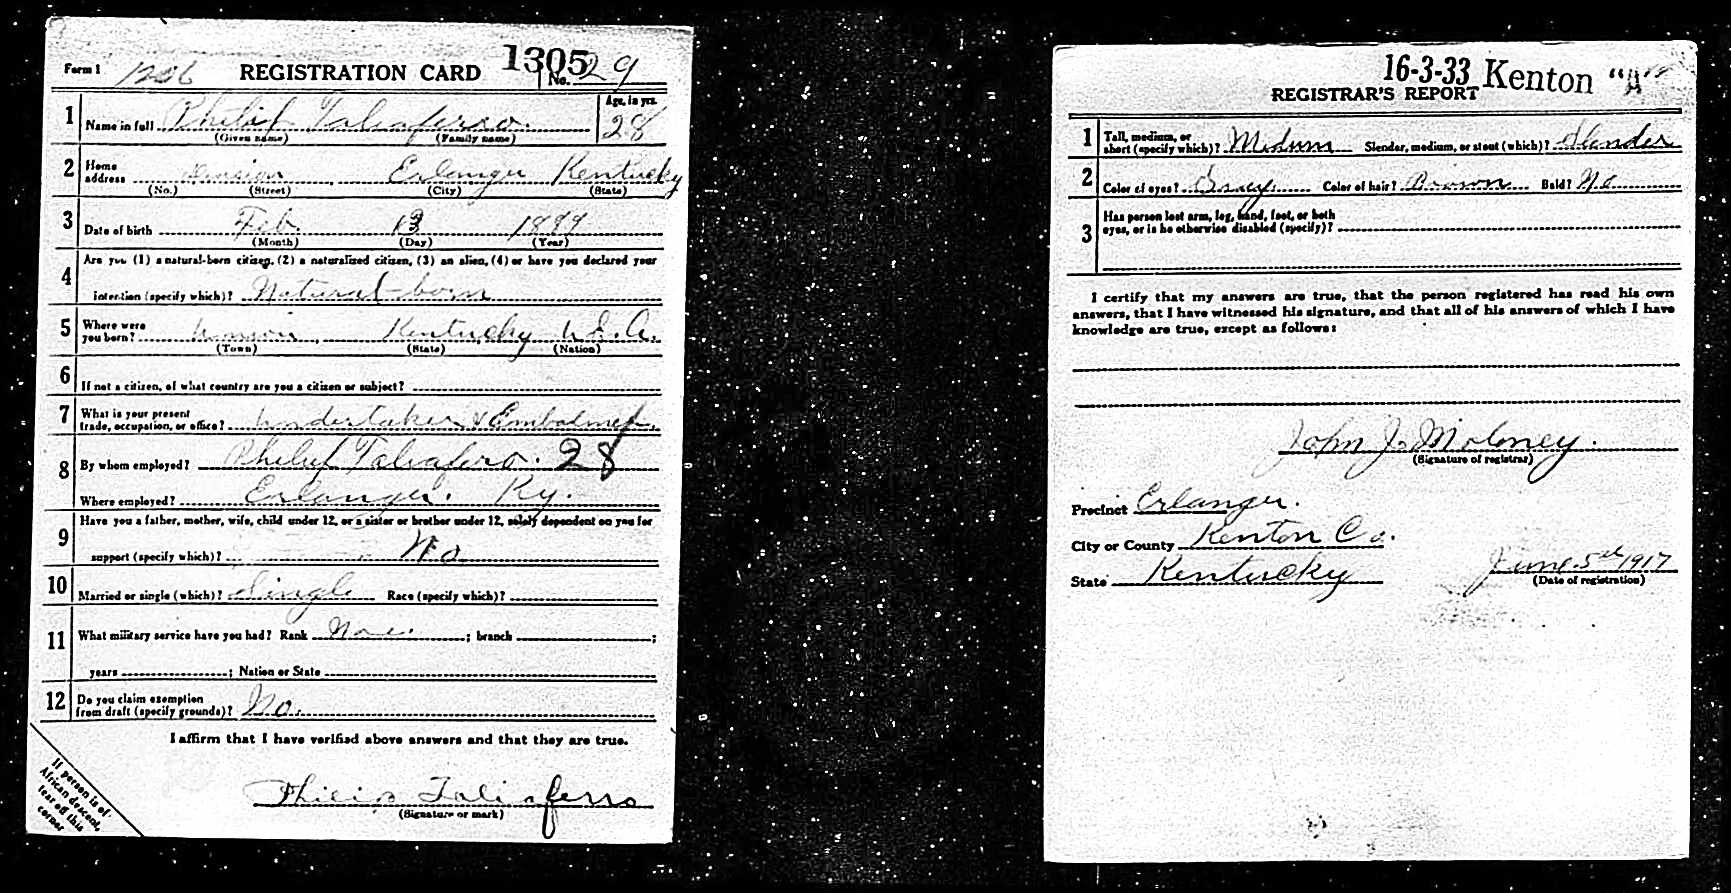 Form 1 1306 REGISTRATION CARD 1305 No. 29
1 Name in full Philip Taliaferro. Age, in yrs. 28
(Given name) (Family name)
2 Home address Erlanger Kentucky
(No.) (Street) (City) (State)
3 Date of birth Feb. 13 1889
(Month) (Day) (Year)
4 Are you (1) a natural-born citizen, (2) a naturalized citizen, (3) an alien, (4) or have you declared your
intention (specify which)? Natural-born
5 Where were you born? Kentucky U.S.A.
(Town) (State) (Nation)
6 If not a citizen, of what country are you a citizen or subject?
7 What is your present trade, occupation, or office? Undertaker & Embalmer.
8 By whom employed? Philip Taliaferro. 28
Where employed? Erlanger. Ky.
9 Have you a father, mother, wife, child under 12, or a sister or brother under 12, solely dependent on you for
support (specify which)? No
10 Married or single (which)? Single Race (specify which)?
11 What military service have you had? Rank None. ; branch ;
years ; Nation or State
12 Do you claim exemption from draft (specify grounds)? No.
I affirm that I have verified above answers and that they are true.
Philip Taliaferro
(Signature or mark)
If person is of
African descent,
tear off this
corner
16-3-33 Kenton "A"
REGISTRAR'S REPORT
1 Tall, medium, or short (specify which)? Medium Slender, medium, or stout (which)? Slender
2 Color of eyes? Gray Color of hair? Brown Bald? No
3 Has person lost arm, leg, hand, foot, or both
eyes, or is he otherwise disabled (specify)?
I certify that my answers are true, that the person registered has read his own
answers, that I have witnessed his signature, and that all of his answers of which I have
knowledge are true, except as follows:
John J. Moloney.
(Signature of registrar)
Precinct Erlanger.
City or County Kenton Co.
State Kentucky June 5th 1917
(Date of registration)